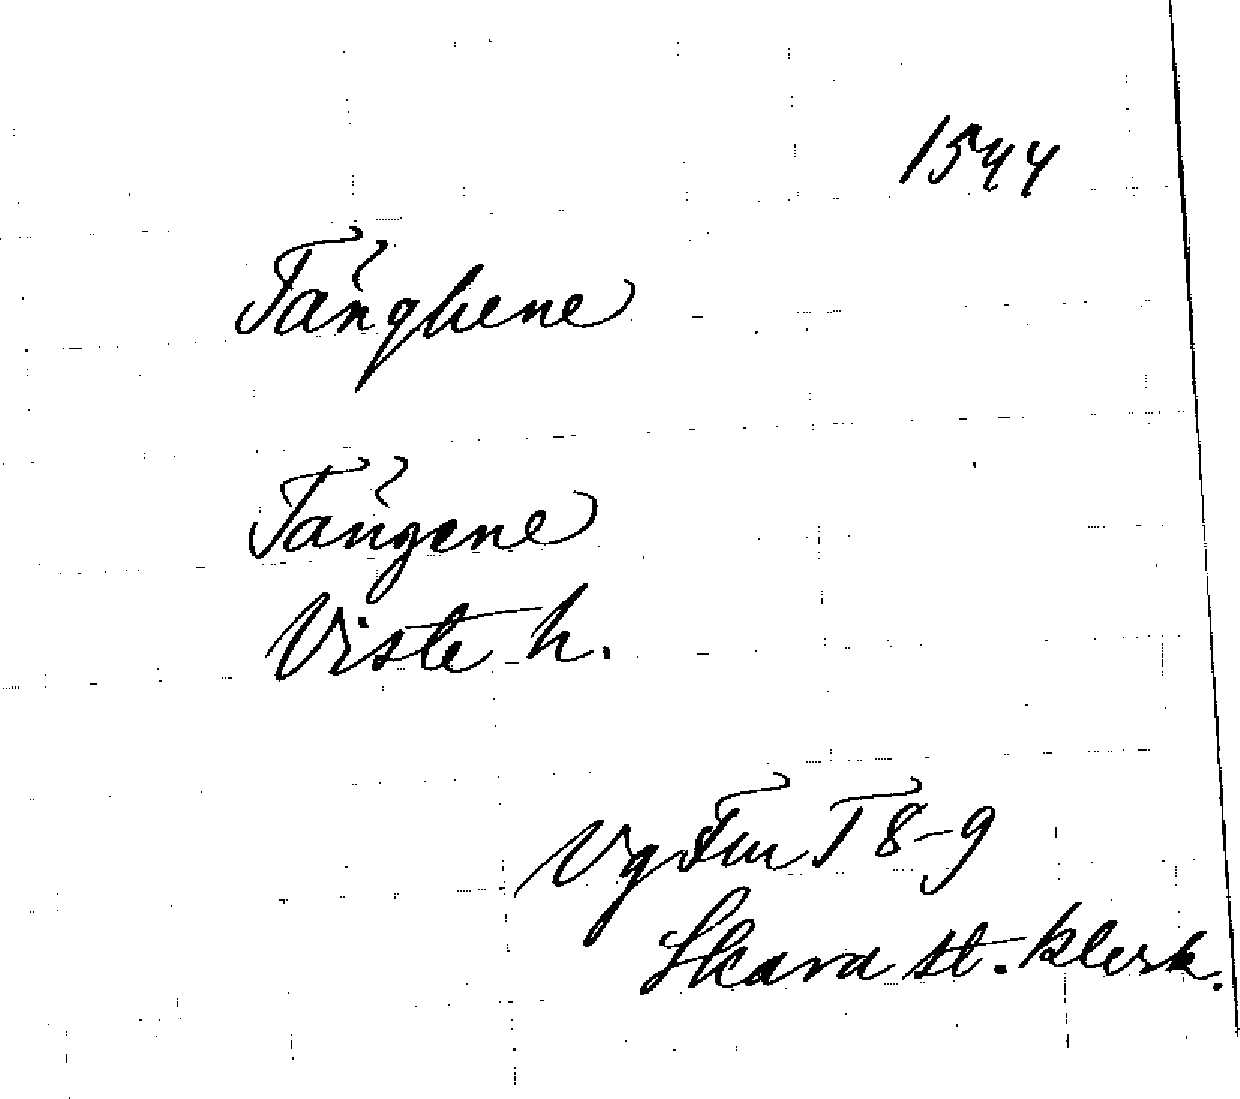 1544
Tånghene
Tångene
Viste h.
Vg Fm T 8-9
Skara st. klerk.